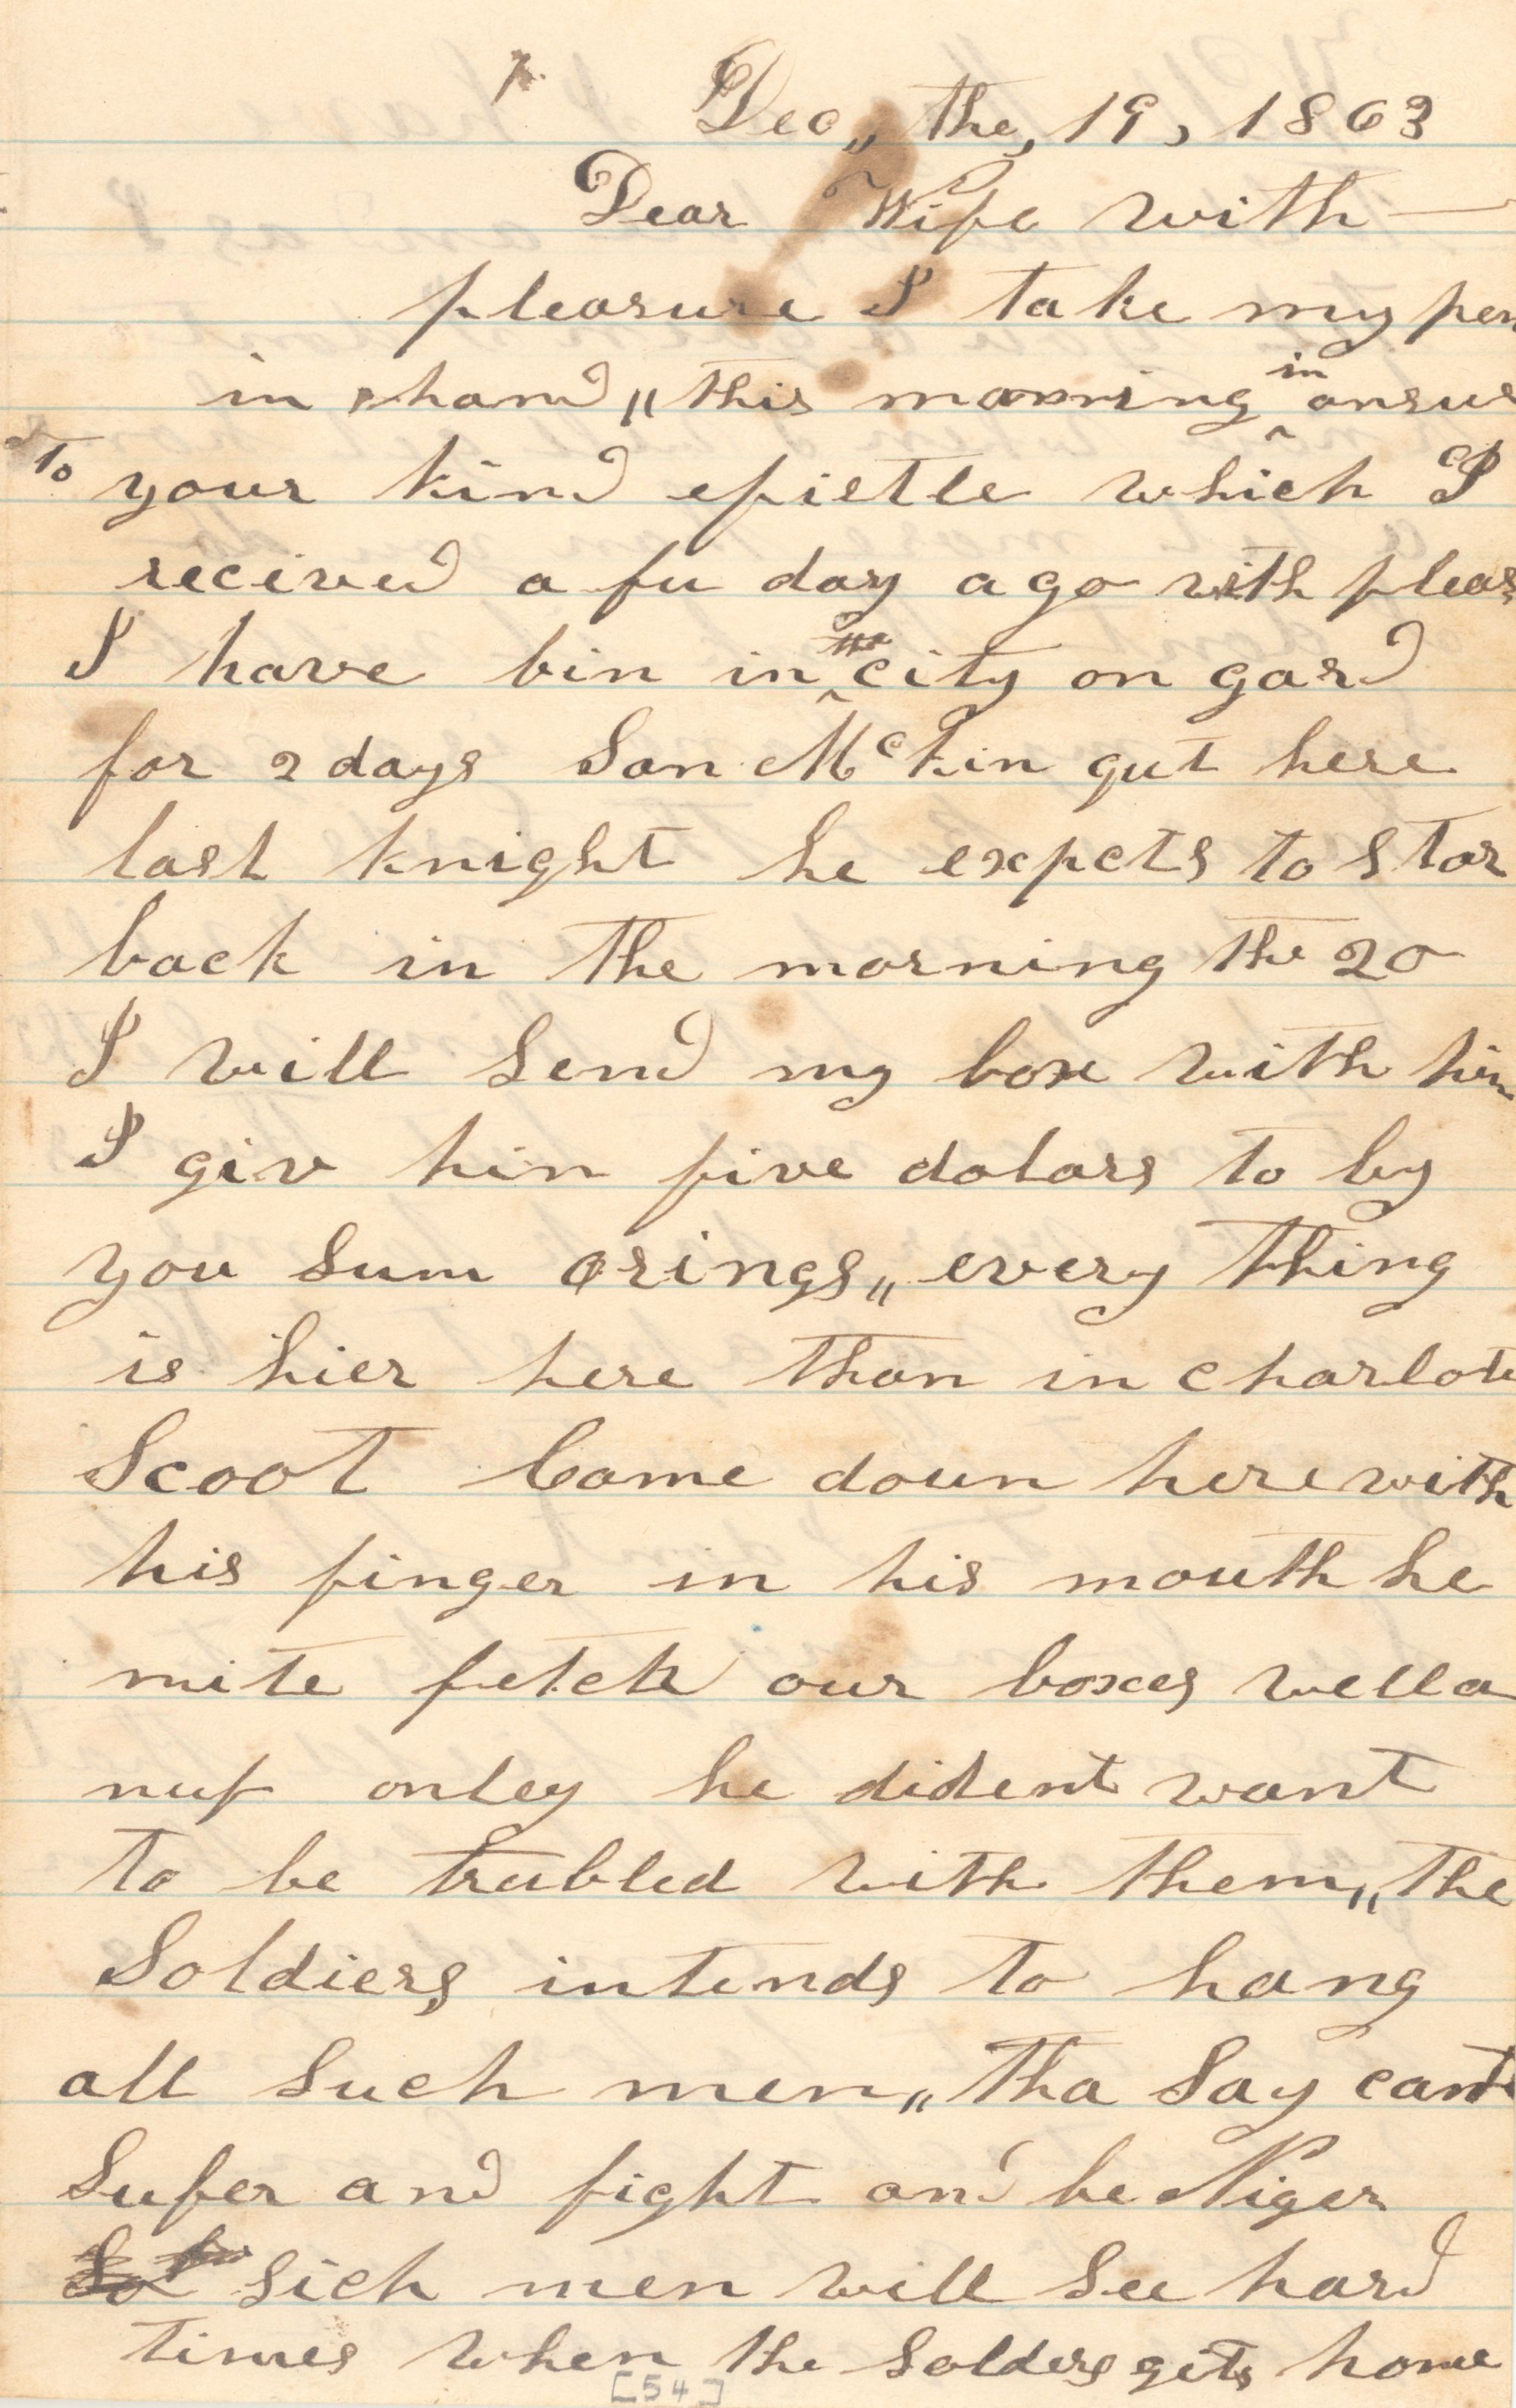 Dec,, the, 19, 1863
Dear Wife with —
pleasure I take my pen
in hand ,, this morning in ansue
to your kind epistle which I
recived a fu day ago with pleas
I have bin in the city on gard
for 2 days San McKin gut here
last knight he expcts to star
back in the morning the 20
I will send my box with him
I giv hin five dolars to by
you sum orings ,, every thing
is hier here than in charlote
Scoot Come doun here with
his finger in his mouth he
mite fetch our boxes well a
nuf onley he dident want
to be trubled with them ,, the
Soldiers intends to hang
all Such men ,, tha Say cant
Sufer and fight and be Niger
sich men will See hard
times when the Solders gets home
[54]